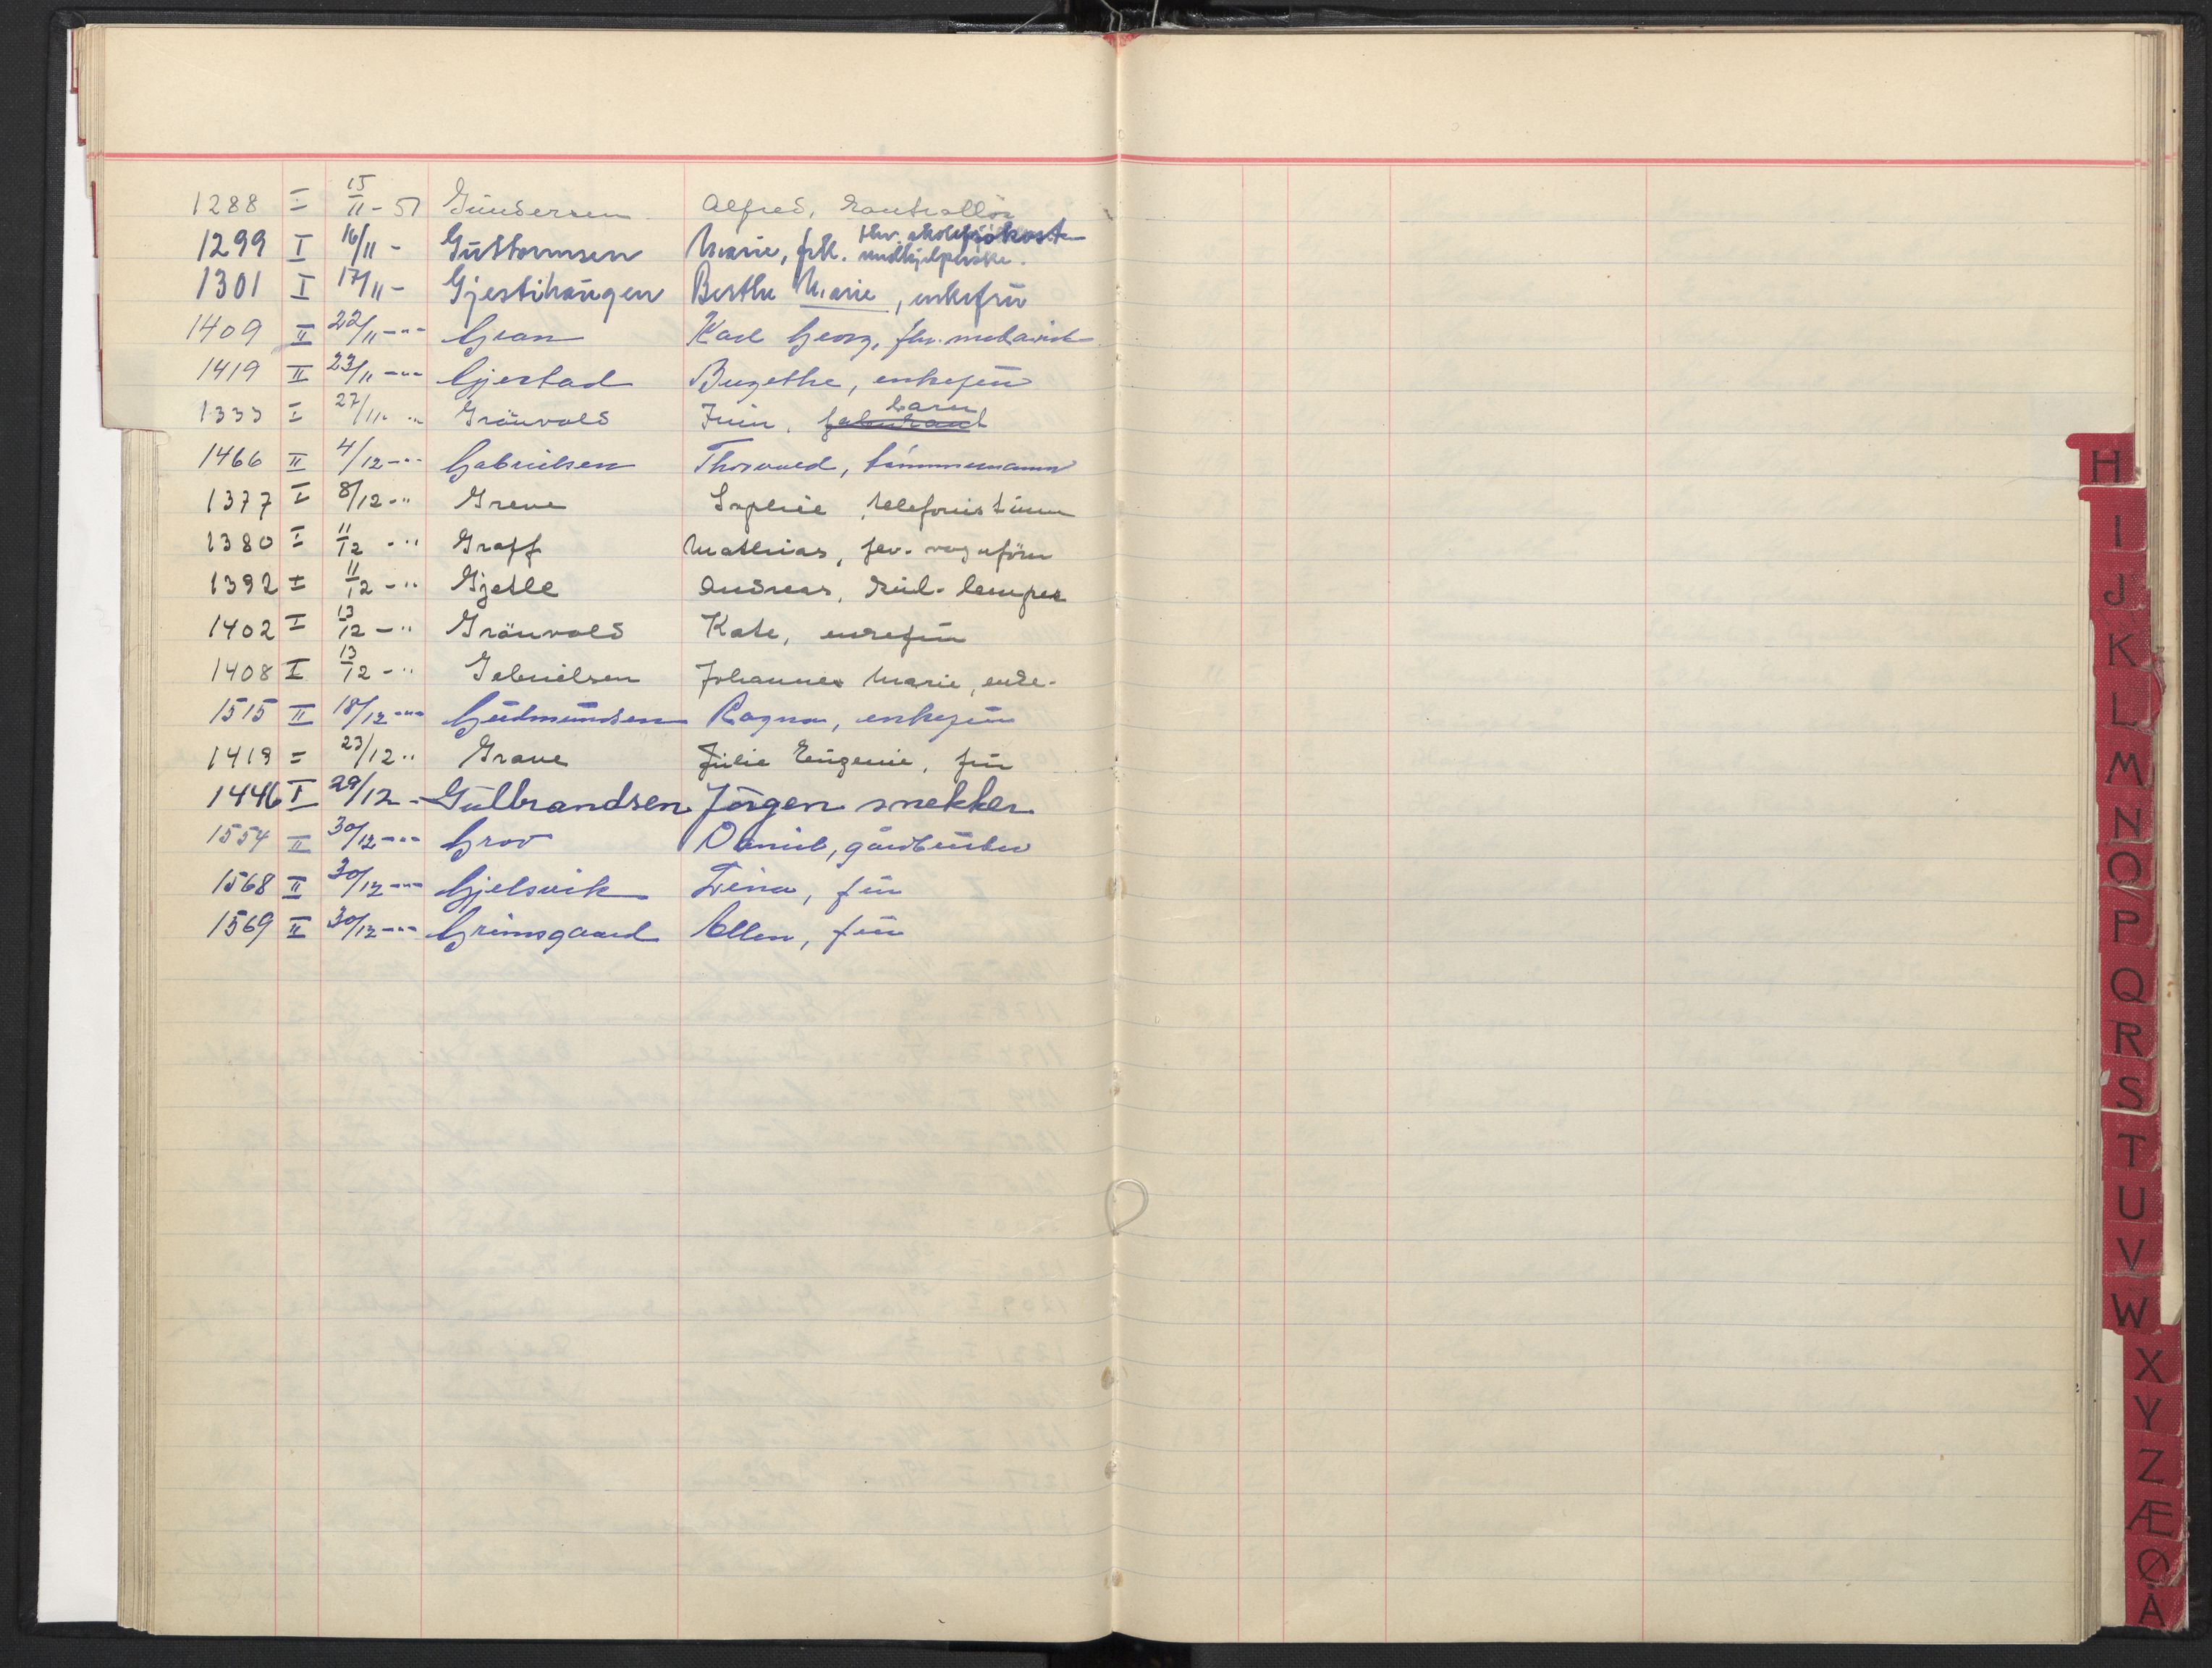 1288 I 15/11-51 Gundersen Alfred, kontrollør
1299 I 16/11 - Guttormsen Marie, frk. fhv. skolefrokost medhjelperske.
1301 I 17/11 - Gjestihaugen Berthe Marie, enkefru
1409 II 22/11 -"- Gran Karl Georg, fhv. mekanik
1419 II 23/11 -"- Gjerstad Bergethe, enkefru
1333 I 27/11 - " Grönvold barn
1466 II 4/12 -"- Gabrielsen Thorvald, tömmermann
1377 I 8/12 - " Greve Sophie, telefonistinne
1380 I 11/12 - " Graff Mathias, fhv. vognför
1392 I 11/12 - " Gjetle Andreas, kul-lemper
1402 I 13/12 - " Grönvold Kate, enkefru
1408 I 13/12 - " Gabrielsen Johanne Marie, enke-
1515 II 18/12 -"- Gudmundsen Ragna, enkefru
1419 = 23/12 " Grave Julie Eugenie, fru
1446 I 29/12 - Gulbrandsen Jörgen snekker
1554 II 30/12 -"- Grov Daniel, gårdbruker
1568 II 30/12 -"- Gjelsvik Lina, fru
1569 II 30/12 -"- Grimsgaard Ellen, fru
H
I
J
K
L
M
N
O
P
Q
R
S
T
U
V
W
X
Y
Z
Æ
Ø
Å